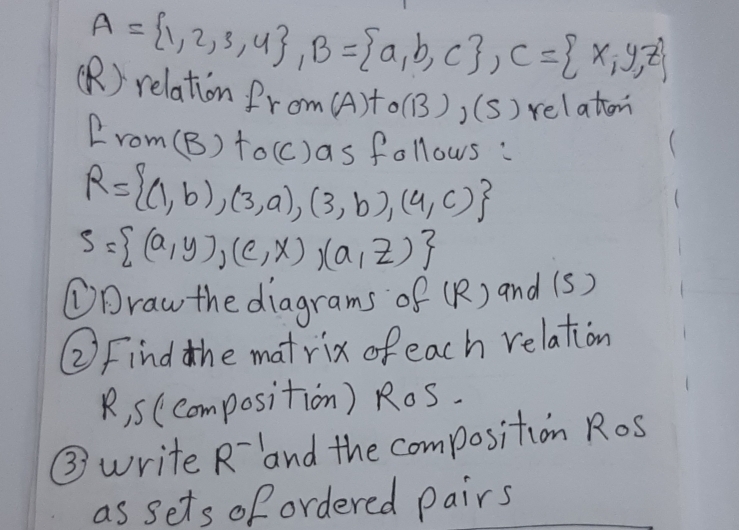 A = {1, 2, 3, 4}, B = {a, b, c}, C = { x, y, z}
(R) relation from (A) to (B), (S) relation
from (B) to (C) as follows :
R = {(1, b), (3, a), (3, b), (4, C)}
S = { (a, y), (c, x), (a, z) }
① Draw the diagrams of (R) and (S)
② Find the matrix of each relation
R, S (composition) RoS .
③ write R⁻¹ and the composition RoS
as sets of ordered pairs